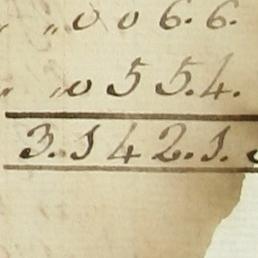 " " 0 0 6. 6.
" " 0 5 5. 4.
3. 1 4 2. 1.